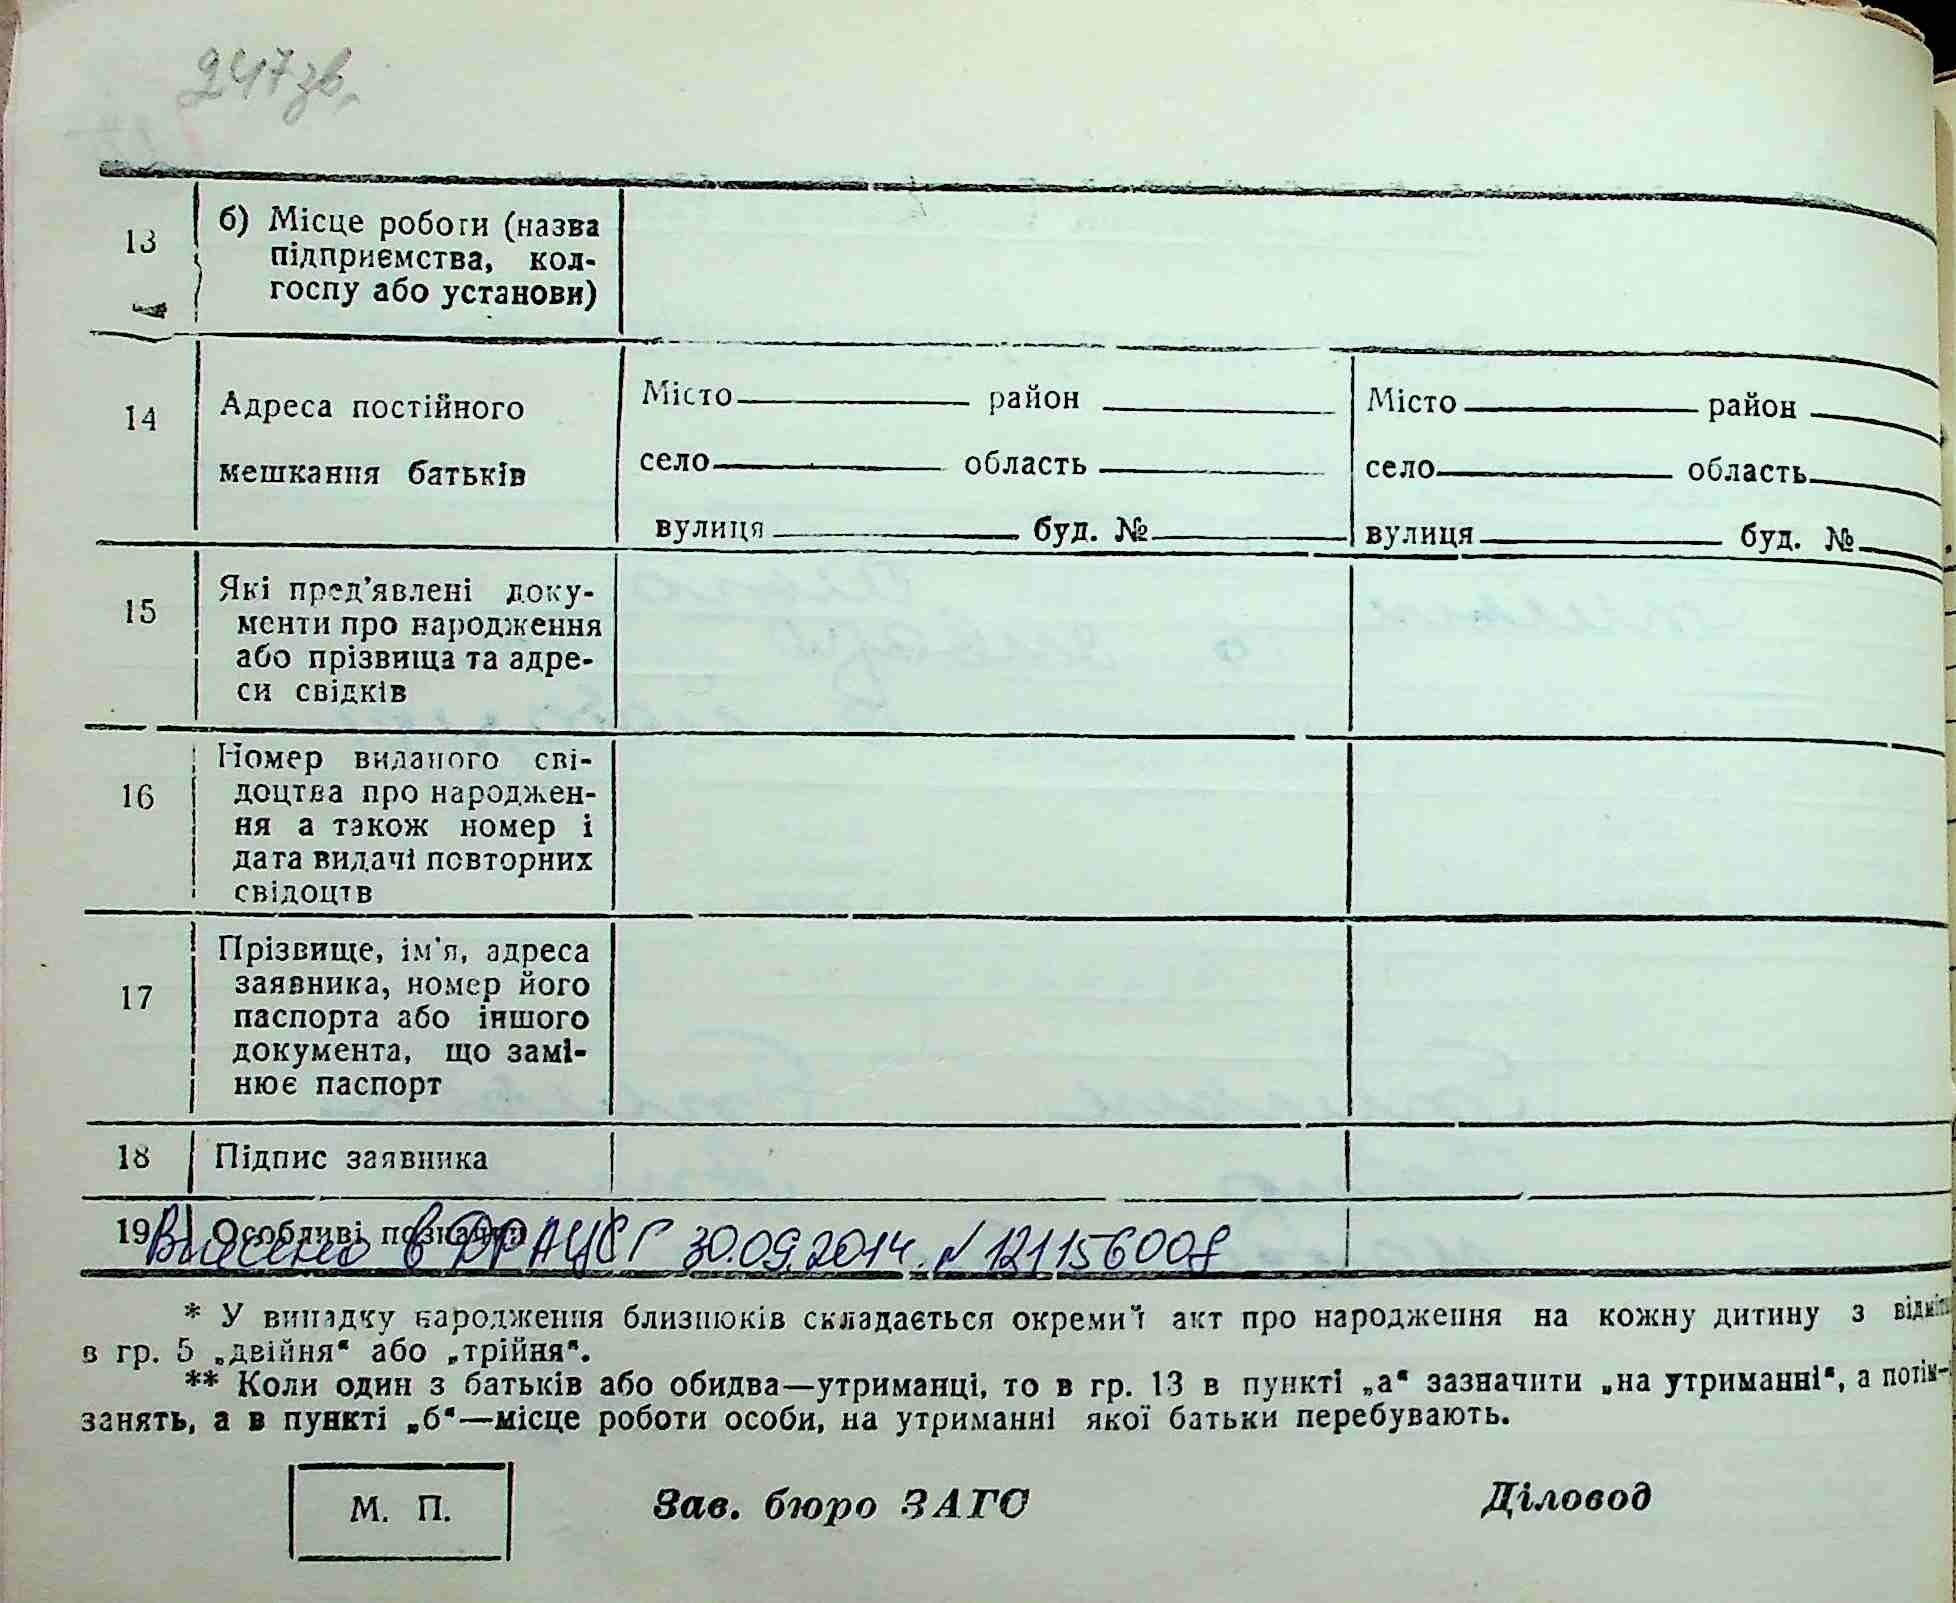 247 зв.
13 б) Місце роботи (назва
підприємства, кол-
госпу або установи)
14 Адреса постійного
мешкання батьків
Місто район
село область
вулиця буд. №
Місто район
село область
вулиця буд. №
15 Які пред'явлені доку-
менти про народження
або прізвища та адре-
си свідків
16 Номер виданого сві-
доцтва про народжен-
ня а також номер і
дата видачі повторних
свідоцтв
17 Прізвище, ім'я, адреса
заявника, номер його
паспорта або іншого
документа, що замі-
нює паспорт
18 Підпис заявника
19 Особливі позначки
Внесено в ДРАЦСГ 30.09.2014. № 121156008
* У випадку народження близнюків складається окремий акт про народження на кожну дитину з
в гр. 5 „двійня“ або „трійня“.
** Коли один з батьків або обидва—утриманці, то в гр. 13 в пункті „а“ зазначити „на утриманні“, а потім—
занять, а в пункті „б“—місце роботи особи, на утриманні якої батьки перебувають.
М. П. Зав. бюро ЗАГС Діловод